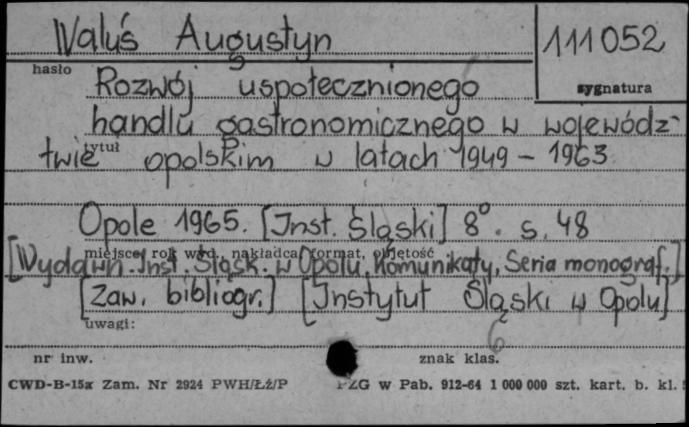 Waluś Augustyn
111052
hasło
sygnatura
Rozwój uspołecznionego
handlu gastronomicznego w wojewódz-
twie opolskim w latach 1949 - 1963
tytuł
Opole 1965. [Inst. Śląski] 8°. s. 48
miejsce, rok wyd., nakładca, format, objętość
[Wydawn. Inst. Śląsk. w Opolu, Komunikaty, Seria monograf.]
[Zaw. bibliogr.] [Instytut Śląski w Opolu]
uwagi:
6
nr inw.
znak klas.
CWD-B-15x Zam. Nr 2924 PWH/Łź/P
PZG w Pab. 912-64 1 000 000 szt. kart. b. kl.